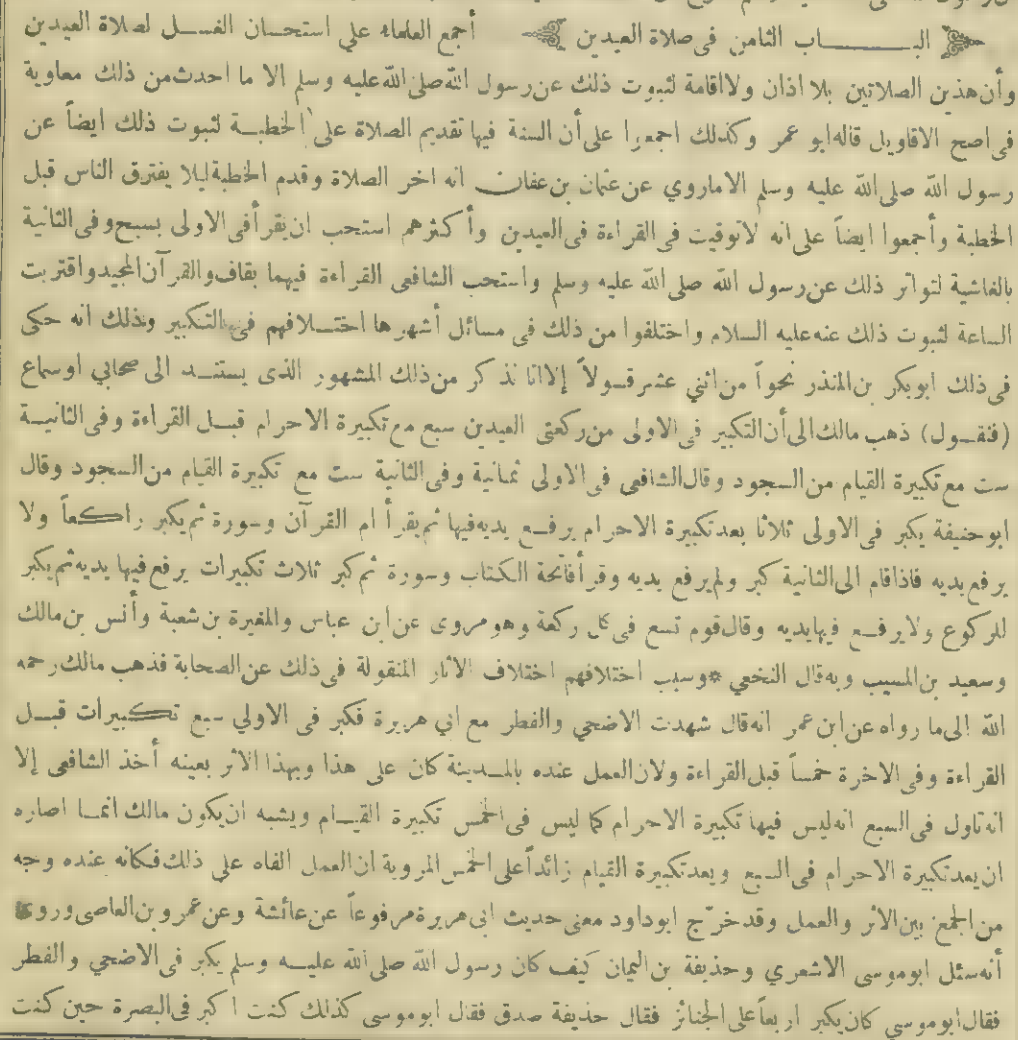 الباب الثامن فى صلاة العيدين أجمع العلماء على استحسان الغسل لصلاة العيدين
وأن هذين الصلاتين بلا اذان ولا اقامة لثبوت ذلك عن رسول الله صلى الله عليه وسلم الا ما احدث من ذلك معاوية
فى اصح الاقاويل قاله ابو عمر وكذلك اجمعوا على أن السنة فيها تقديم الصلاة على الخطبة لثبوت ذلك ايضاً عن
رسول الله صلى الله عليه وسلم الا ماروي عن عثمان بن عفان انه اخر الصلاة وقدم الخطبة ليلا يفترق الناس قبل
الخطبة وأجمعوا ايضاً على انه لا توقيت فى القراءة فى العيدين وأكثرهم استحب ان يقرأ فى الاولى بسبح وفى الثانية
بالغاشية لتواتر ذلك عن رسول الله صلى الله عليه وسلم واستحب الشافعى القراءة فيهما بقاف والقرآن المجيد واقتربت
الساعة لثبوت ذلك عنه عليه السلام واختلفوا من ذلك فى مسائل أشهرها اختلافهم فى التكبير وذلك انه حكى
فى ذلك ابوبكر بن المنذر نحواً من اثني عشر قولاً إلا انا نذكر من ذلك المشهور الذى يستند الى صحابي او سماع
(فنقول) ذهب مالك الى أن التكبير فى الاولى من ركعتى العيدين سبع مع تكبيرة الاحرام قبل القراءة وفى الثانية
ست مع تكبيرة القيام من السجود وقال الشافعى فى الاولى ثمانية وفى الثانية ست مع تكبيرة القيام من السجود وقال
ابو حنيفة يكبر فى الاولى ثلاثا بعد تكبيرة الاحرام يرفع يديه فيها ثم يقرأ ام القرآن وسورة ثم يكبر راكعاً ولا
يرفع يديه فاذا قام الى الثانية كبر ولم يرفع يديه وقرأ فاتحة الكتاب وسورة ثم كبر ثلاث تكبيرات يرفع فيها يديه ثم يكبر
للركوع ولا يرفع فيها يديه وقال قوم تسع فى كل ركعة وهو مروى عن ابن عباس والمغيرة بن شعبة وأنس بن مالك
وسعيد بن المسيب وبه قال النخعي *وسبب اختلافهم اختلاف الآثار المنقولة فى ذلك عن الصحابة فذهب مالك رحمه
الله الى ما رواه عن ابن عمر انه قال شهدت الاضحي والفطر مع ابي هريرة فكبر فى الاولي سبع تكبيرات قبل
القراءة وفى الاخرة خمساً قبل القراءة ولان العمل عنده بالمدينة كان على هذا وبهذا الاثر بعينه أخذ الشافعى إلا
انه تاول فى السبع انه ليس فيها تكبيرة الاحرام كما ليس فى الخمس تكبيرة القيام ويشبه ان يكون مالك انما اصاره
ان يعد تكبيرة الاحرام فى السبع ويعد تكبيرة القيام زائداً على الخمس المروية ان العمل الفاه على ذلك فكانه عنده وجه
من الجمع بين الاثر والعمل وقد خرّج ابوداود معنى حديث ابى هريرة مرفوعاً عن عائشة وعن عمرو بن العاصى وروى
أنه سئل ابوموسى الاشعري وحذيفة بن اليمان كيف كان رسول الله صلى الله عليه وسلم يكبر فى الاضحي والفطر
فقال ابو موسي كان يكبر اربعاً على الجنائز فقال حذيفة صدق فقال ابوموسى كذلك كنت اكبر فى البصرة حين كنت